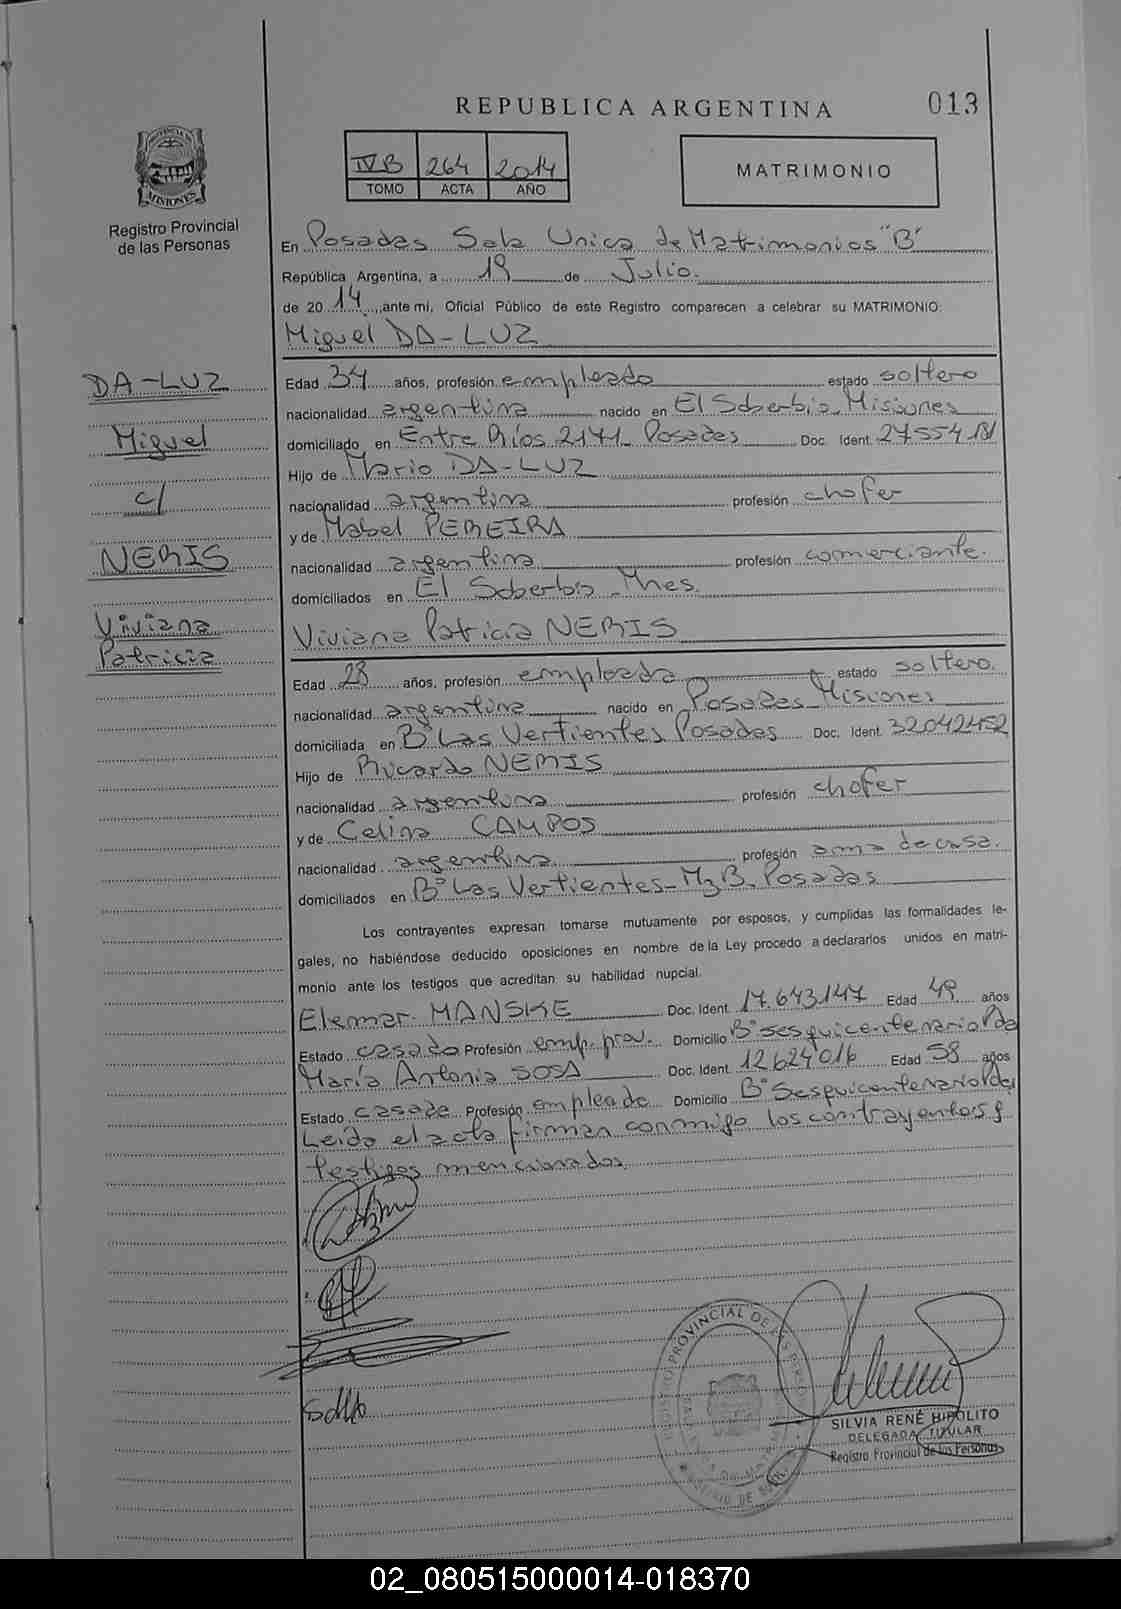 REPUBLICA ARGENTINA 013
IVB 264 2014
TOMO ACTA AÑO
MATRIMONIO
PROVINCIA DE
MISIONES
Registro Provincial
de las Personas
En Posadas Sala Unica de Matrimonios "B"
República Argentina, a 19 de Julio.
de 2014, ante mi, Oficial Público de este Registro comparecen a celebrar su MATRIMONIO:
Miguel DA-LUZ
DA-LUZ
Miguel
c/
NERIS
Viviana
Patricia
Edad 34 años, profesión empleado estado soltero
nacionalidad argentina nacido en El Soberbio Misiones
domiciliado en Entre Ríos 2141 Posadas Doc. Ident. 27554
Hijo de Mario DA-LUZ
nacionalidad argentina profesión chofer
y de Mabel PEREIRA
nacionalidad argentina profesión comerciante.
domiciliados en El Soberbio Mnes.
Viviana Patricia NERIS
Edad 28 años, profesión empleada estado soltero.
nacionalidad argentina nacido en Posadas Misiones
domiciliada en B° Las Vertientes Posadas Doc. Ident. 32042452
Hijo de Ricardo NERIS
nacionalidad argentina profesión chofer
y de Celina CAMPOS
nacionalidad argentina profesión ama de casa.
domiciliados en B° Las Vertientes - Mz B. Posadas
Los contrayentes expresan tomarse mutuamente por esposos, y cumplidas las formalidades le-
gales, no habiéndose deducido oposiciones en nombre de la Ley procedo a declararlos unidos en matri-
monio ante los testigos que acreditan su habilidad nupcial.
Elemar MANSKE Doc. Ident. 17.643.147 Edad 49 años
Estado casado Profesión emp. prov. Domicilio B° sesquicentenario Pda
María Antonia SOSA Doc. Ident. 12624016 Edad 58 años
Estado casada Profesión empleado Domicilio B° Sesquicentenario
Leída el acta firman conmigo los contrayentes y
testigos mencionados.
REGISTRO PROVINCIAL DE LAS PERSONAS
SILVIA RENÉ HIPOLITO
DELEGADA TITULAR
Registro Provincial de las Personas
02_080515000014-018370